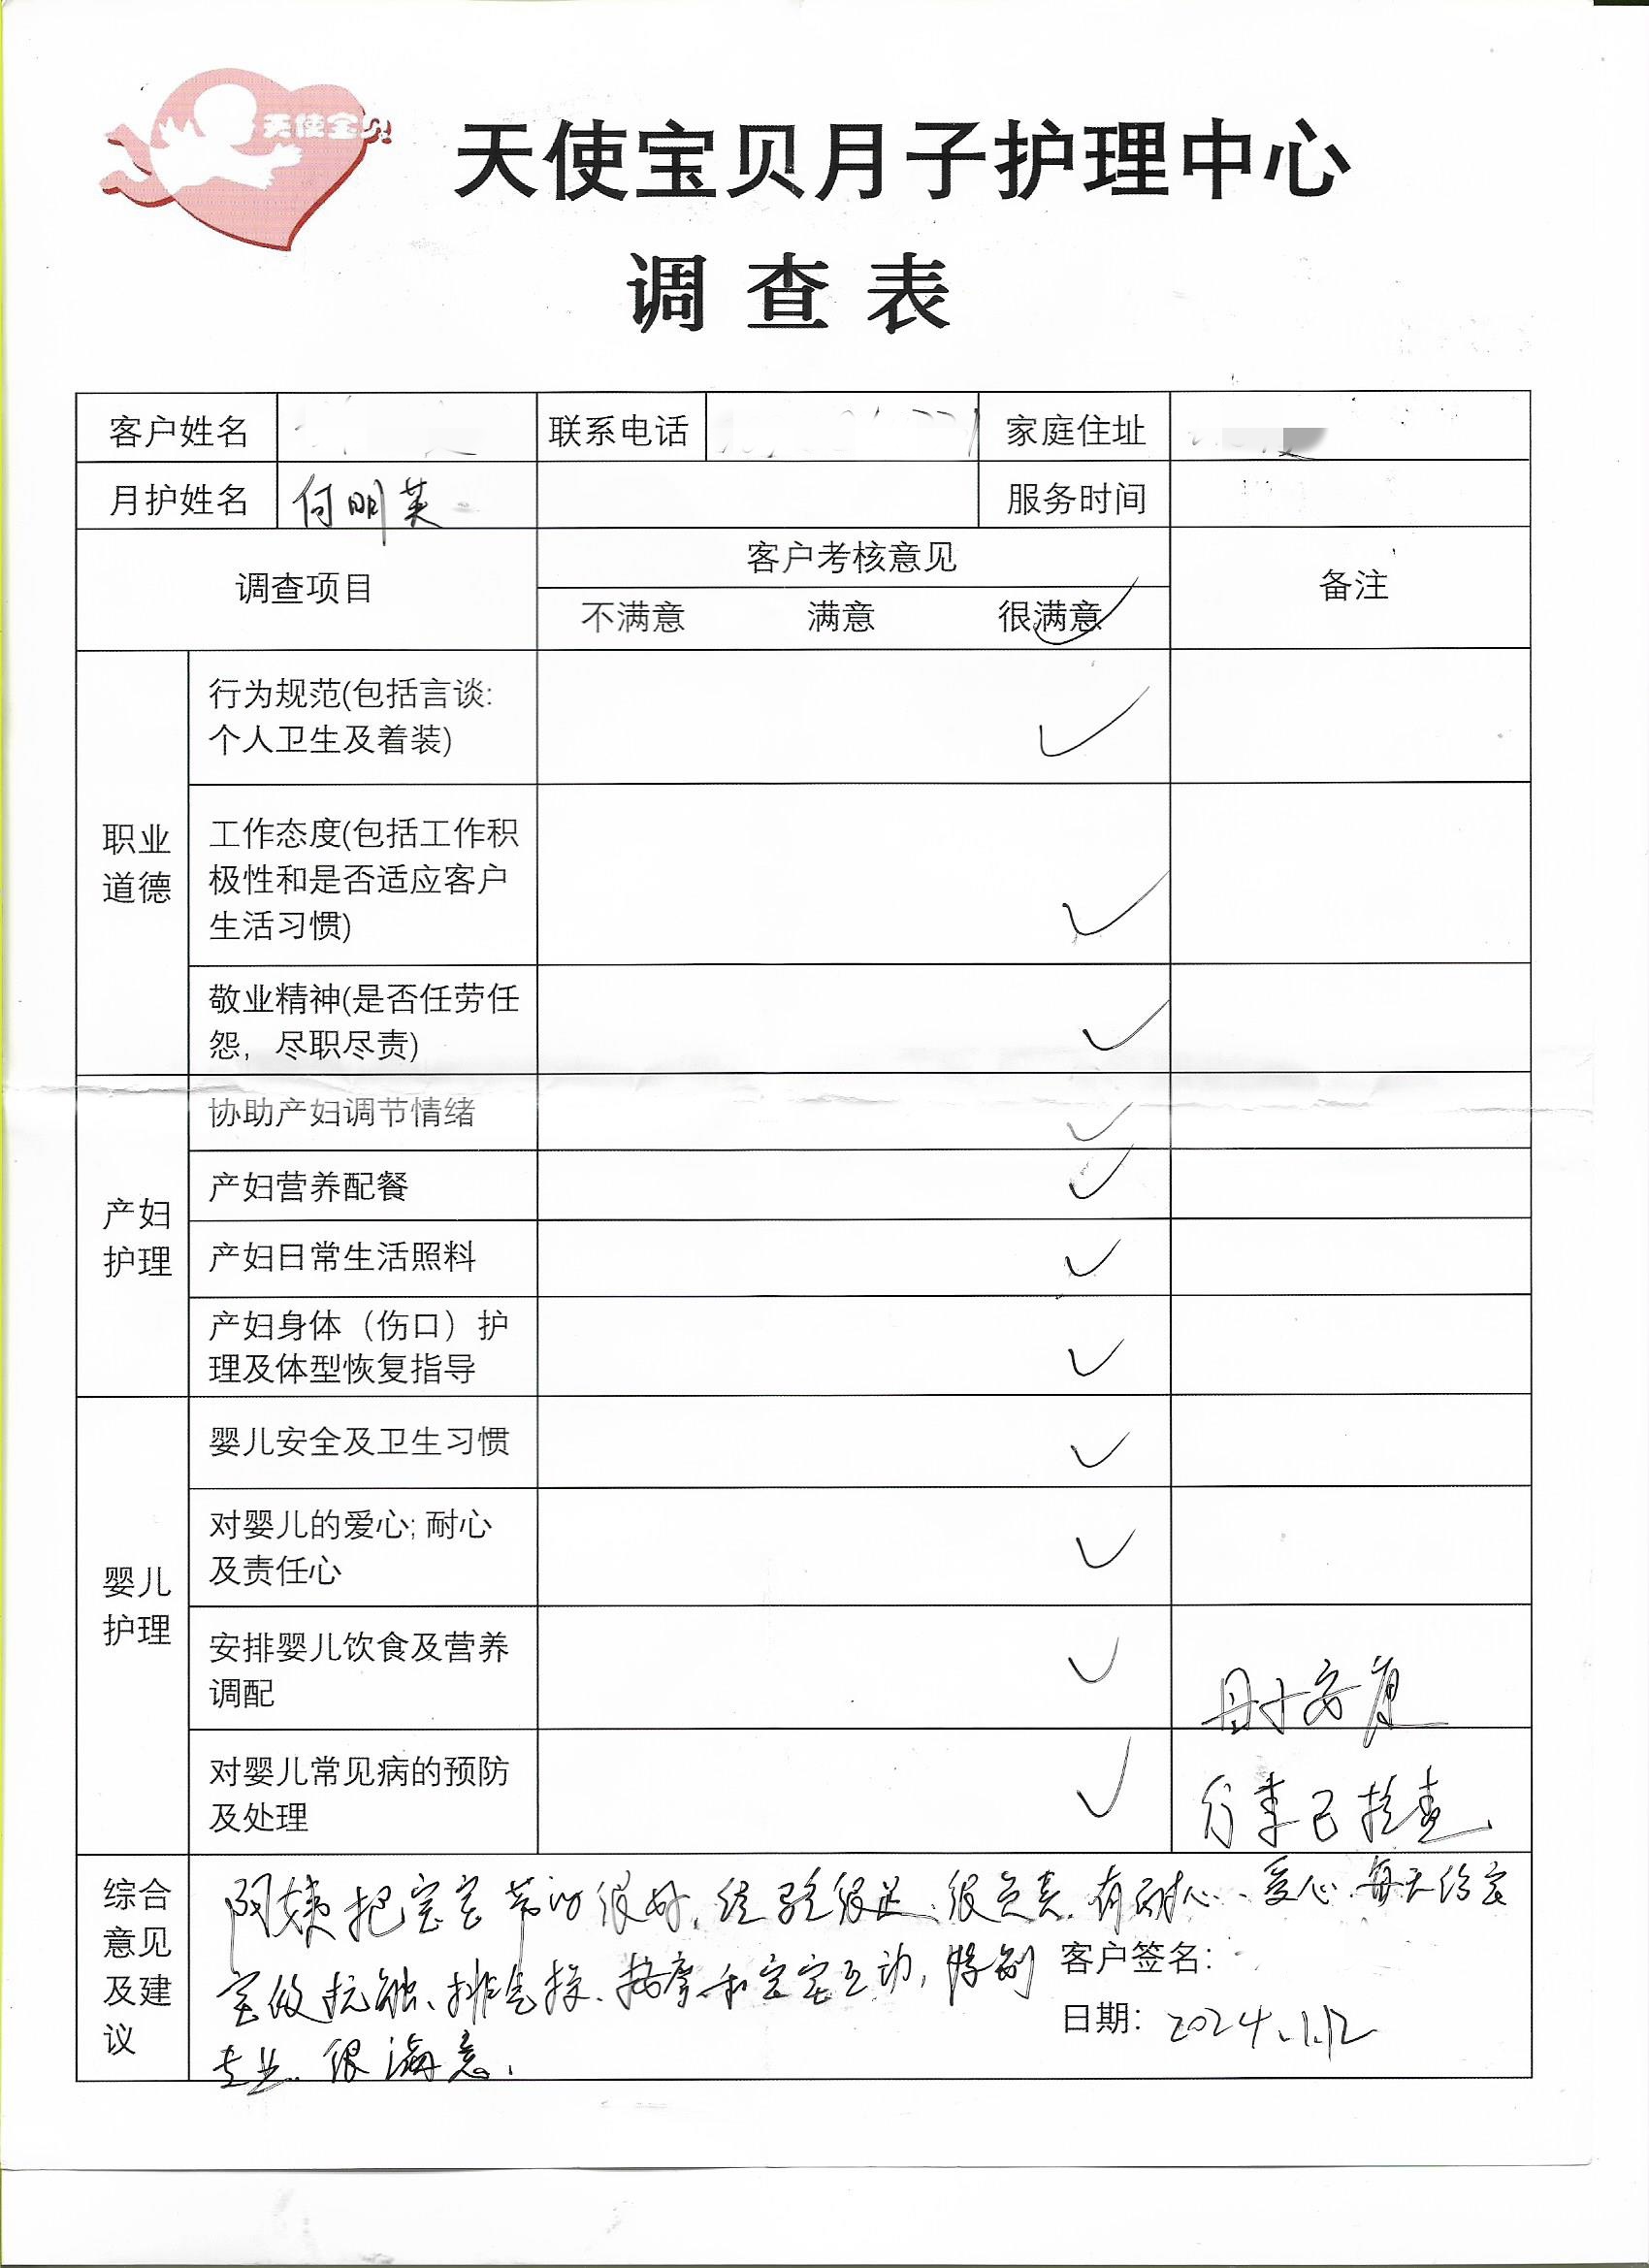 天使宝贝
天使宝贝月子护理中心
调查表
客户姓名 联系电话 家庭住址
月护姓名 何明英 服务时间
调查项目 客户考核意见 备注
不满意 满意 很满意
职业道德
行为规范(包括言谈:
个人卫生及着装)
工作态度(包括工作积
极性和是否适应客户
生活习惯)
敬业精神(是否任劳任
怨，尽职尽责)
产妇护理
协助产妇调节情绪
产妇营养配餐
产妇日常生活照料
产妇身体（伤口）护
理及体型恢复指导
婴儿护理
婴儿安全及卫生习惯
对婴儿的爱心; 耐心
及责任心
安排婴儿饮食及营养
调配
母子安康
对婴儿常见病的预防
及处理
已检查
综合意见及建议
阿姨把宝宝带的很好、经验很足、很负责、有耐心、爱心、每天给宝
宝做抚触、排气操、按摩和宝宝互动，特别
专业、很满意、
客户签名:
日期: 2024.1.12